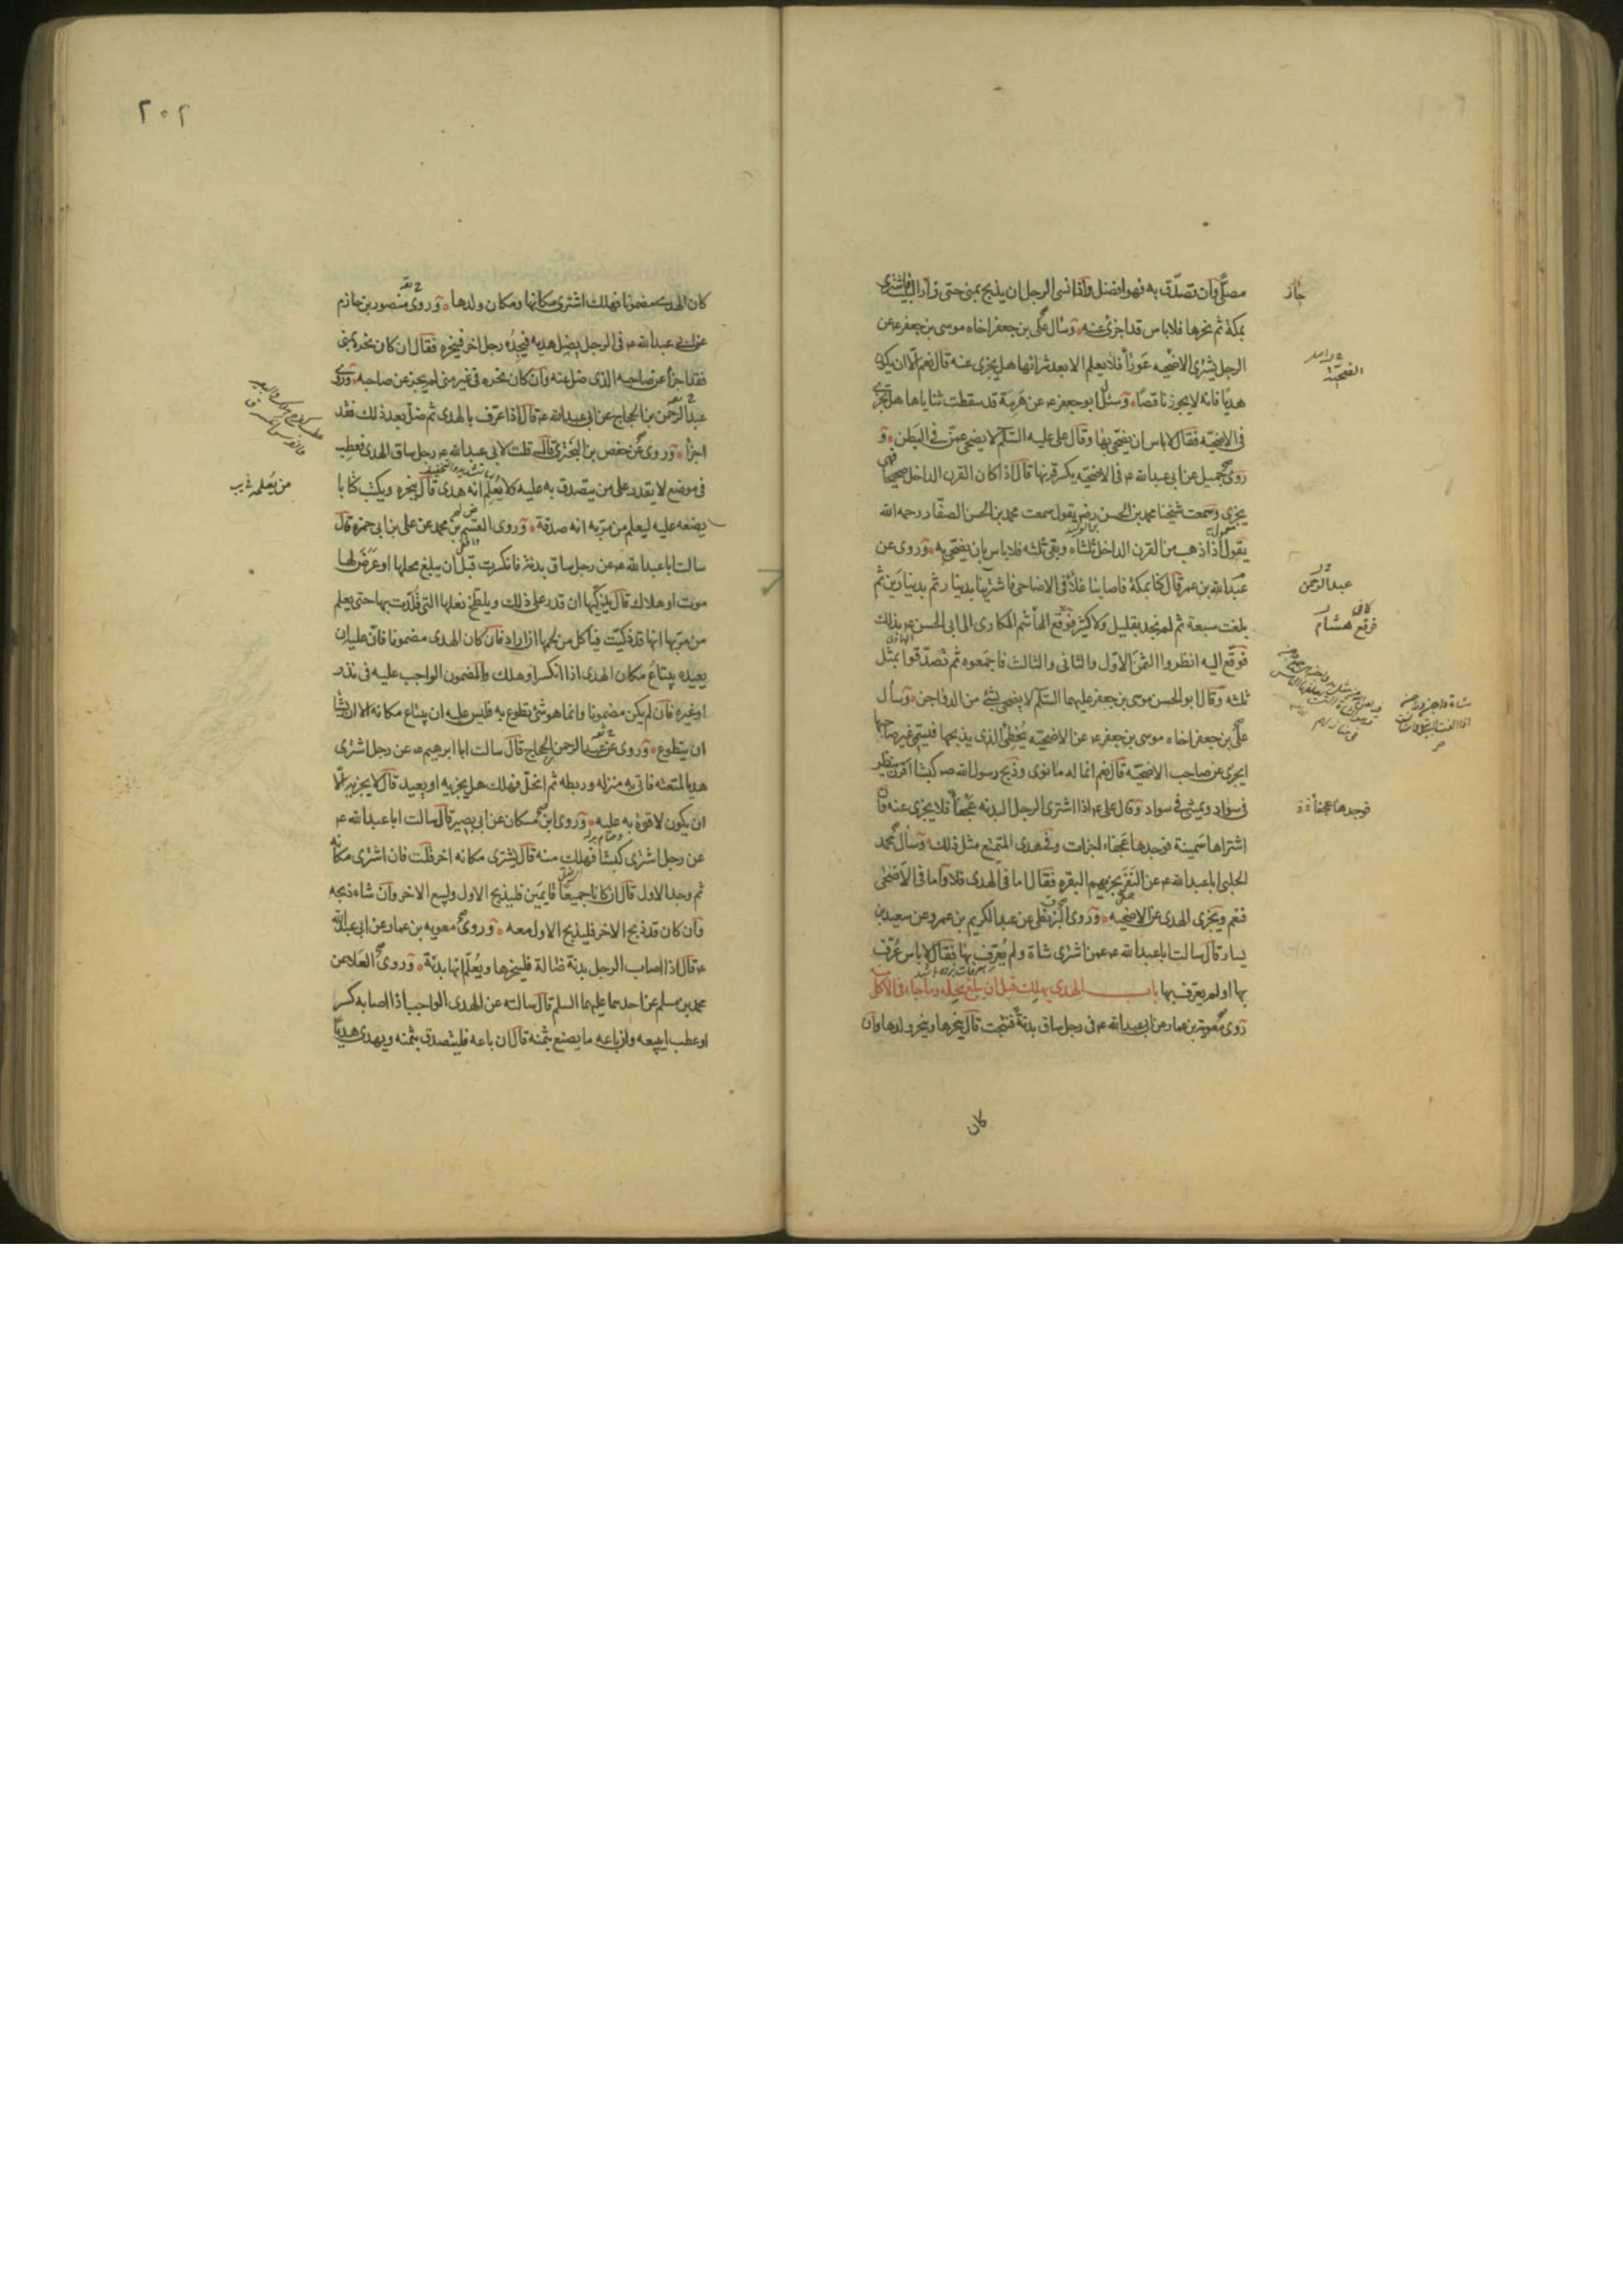 مصلّى وان تصدّق به فهو افضل واذا نسى الرجل ان يذبح بمنى حتى زار البيت فاشترى
بمكة ثم نحرها فلا باس قد اجزئ عنه وسأل على بن جعفر اخاه موسى بن جعفر ع عن
الرجل يشترى الاضحيه عوراً فلا يعلم الا بعد شرائها هل يجزى عنه قال نعم الّا ان يكون
هديا فانه لا يجوز ناقصًا وسئل ابو جعفر ع عن هرمة قد سقطت ثناياها هل تجزى
فى الاضحيّه فقال لا باس ان يضحّى بها وقال على عليه السّلم لا يضحى عمن فى البطن و
روى جميل عن ابى عبدالله ع فى الاضحيّه يكسر قرنها قال اذا كان القرن الداخل صحيحا فهى
يجزى وسمعت شيخنا محمد بن الحسن رضى يقول سمعت محمد بن الحسن الصفّار رحمه الله
يقول اذا ذهب من القرن الداخل ثلثاه وبقى ثلثه فلا باس بان يضحّى به وروى عن
عبدالله بن عمر قال كنا بمكة فاصابنا غلاء فى الاضاحى فاشترينا بدينار ثم بدينارين ثم
بلغت سبعة ثم لم نجد بقليل ولا كثير فوقع هشام المكارى الى ابى الحسن ع بذلك
فوقّع اليه انظروا الثمن الاوّل والثانى والثالث فاجمعوه ثم تصدّقوا بمثل
ثلثه وقال ابو الحسن موسى بن جعفر عليهما السّلم لا يضحى بشئ من الدواجن وسأل
علىّ بن جعفر اخاه موسى بن جعفر ع عن الاضحيّه يخطئ الذى يذبحها فيسمّى غير صاحبها
ايجزى عن صاحب الاضحيّه قال نعم انما له ما نوى وذبح رسول الله ص كبشا اقرن ينظر
فى سواد ويمشى فى سواد وقال على ع اذا اشترى الرجل البدنه عجفاً فلا يجزى عنه وان
اشتراها سمينة فوجدها عجفاء اجزات وفى هدى المتمتع مثل ذلك وسأل محمد
الحلبى ابا عبدالله ع عن النفر يجزيهم البقره فقال اما فى الهدى فلا واما فى الاضحى
فنعم ويجزى الهدى عن الاضحيه وروى البزنطى عن عبد الكريم بن عمرو عن سعيد بن
يسار قال سالت ابا عبدالله ع عمن اشترى شاة ولم يعرّف بها فقال لا باس عرّف
بها اولم يعرّف بها باب الهدى يهلك قبل ان يبلغ محله وما جاء فى الاكل
روى معوية بن عمار عن ابى عبدالله ع فى رجل ساق بدنة فنتجت قال ينحرها وينحر ولدها وان
كان
جاز
عبدالرحمن
فرقع هشام
فوجدها عجفا
٢٠٢
كان الهدى مضمونا فهلك اشترى مكانها ومكان ولدها وروى منصور بن حازم
عن ابى عبدالله ع فى الرجل يضل هديه فيجده رجل اخر فينحره فقال ان كان نحره بمنى
فقد اجزأ عن صاحبه الذى ضل عنه وان كان نحره فى غير منى لم يجز عن صاحبه وروى
عبدالرحمن بن الحجاج عن ابى عبدالله ع قال اذا عرّف بالهدى ثم ضل بعد ذلك فقد
اجزأ وروى عن حفص بن البخترى قال قلت لابى عبدالله ع رجل ساق الهدى فعطب
فى موضع لا يقدر على من يتصدق به عليه ولا يعلم انه هدى قال ينحره ويكتب كتابا
يضعه عليه ليعلم من مرّ به انه صدقة وروى القسم بن محمد عن على بن ابى حمزه قال
سالت ابا عبدالله ع عن رجل ساق بدنة فانكسرت قبل ان يبلغ محلها او عرض لها
موت او هلاك قال يذكّيها ان قدر على ذلك ويلطخ نعلها التى قُلّدت بها حتى يعلم
من مرّ بها انها قد ذكّيت فياكل من لحمها ان اراد فان كان الهدى مضمونا فانّ عليه ان
يعيده يبتاع مكان الهدى اذا انكسر او هلك والمضمون الواجب عليه فى نذر
او غيره فان لم يكن مضمونا وانما هو شئ تطوع به فليس عليه ان يبتاع مكانه الا ان يشا
ان يتطوع وروى عن عبد الرحمن بن الحجاج قال سالت ابا ابرهيم ع عن رجل اشترى
هديا لمتعته فاتى به منزله وربطه ثم انحلّ فهلك هل يجزيه او يعيد قال لا يجزيه الّا
ان يكون لا قوة به عليه وروى ابن مسكان عن ابى بصير قال سالت ابا عبدالله ع
عن رجل اشترى كبشا فهلك منه قال يشترى مكانه اخر قلت فان اشترى مكانه
ثم وجد الاول قال ان كانا جميعًا قايمين فليذبح الاول وليبع الاخر وان شاء ذبحه
وان كان قد ذبح الاخر فليذبح الاول معه وروى معويه بن عمار عن ابى عبدالله
ع قال اذا اصاب الرجل بدنة ضالة فلينحرها ويعلم انها بدنة وروى العلا عن
محمد بن مسلم عن احدهما عليهما السلم قال سالته عن الهدى الواجب اذا اصابه كسر
او عطب ايبيعه وان باعه ما يصنع بثمنه قال ان باعه فليتصدق بثمنه ويهدى هديًا